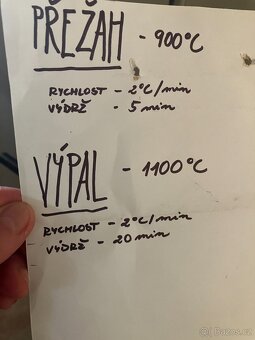 PŘEŽAH - 900°C
RYCHLOST - 2°C/min
VÝDRŽ - 5 min
VÝPAL - 1100°C
RYCHLOST - 2°C/min
VÝDRŽ - 20 min
Bazos.cz